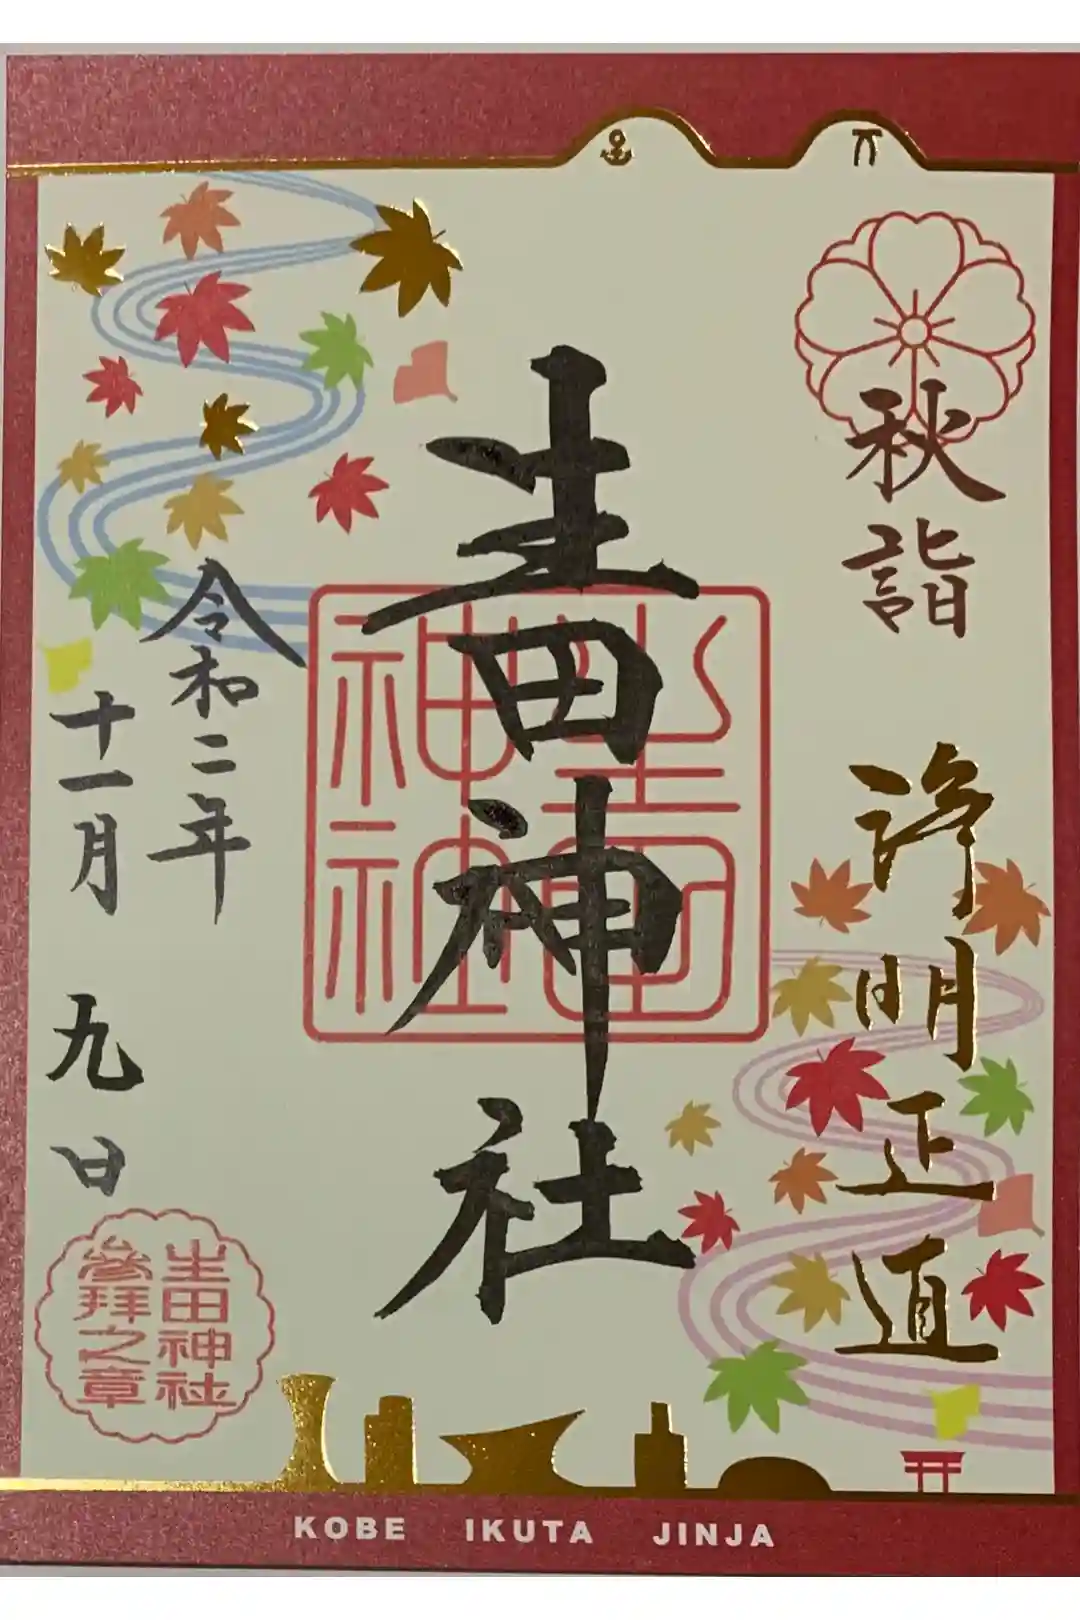 秋詣
浄明正道
生田神社
生田神社
令和二年
十一月九日
生田神社
參拜之章
KOBE IKUTA JINJA